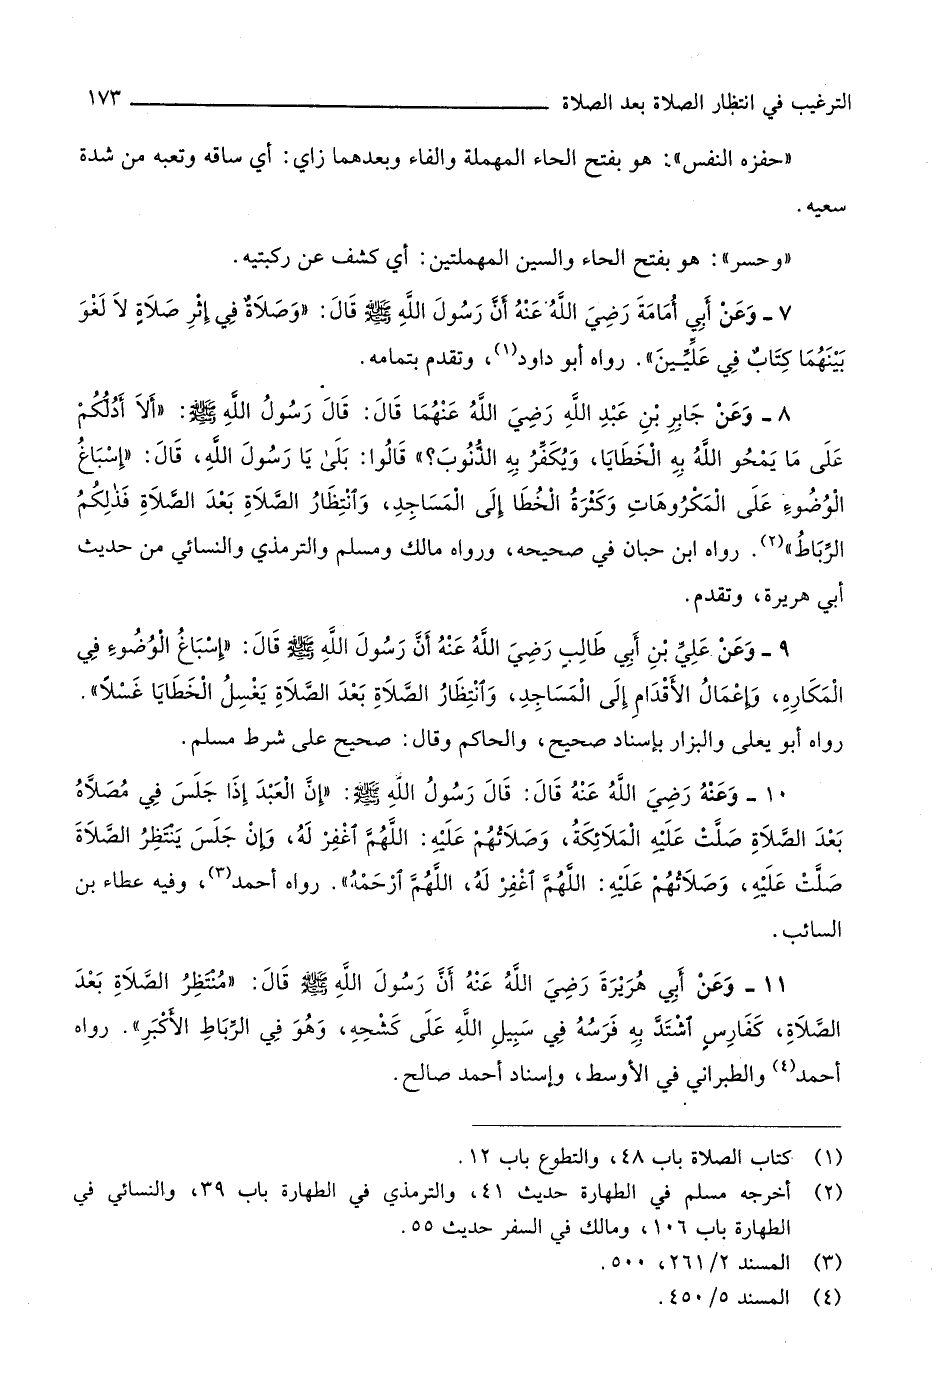 الترغيب في انتظار الصلاة بعد الصلاة ١٧٣
«حفزه النفس»: هو بفتح الحاء المهملة والفاء وبعدهما زاي: أي ساقه وتعبه من شدة
سعيه.
«وحسر»: هو بفتح الحاء والسين المهملتين: أي كشف عن ركبتيه.
٧ ـ وَعَنْ أَبِي أُمَامَةَ رَضِيَ اللَّهُ عَنْهُ أَنَّ رَسُولَ اللَّهِ ﷺ قَالَ: «وَصَلَاةٌ فِي إِثْرِ صَلَاةٍ لاَ لَغْوَ
بَيْنَهُمَا كِتَابٌ فِي عَلِّيِّينَ». رواه أبو داود(١)، وتقدم بتمامه.
٨ ـ وَعَنْ جَابِرِ بْنِ عَبْدِ اللَّهِ رَضِيَ اللَّهُ عَنْهُمَا قَالَ: قَالَ رَسُولُ اللَّهِ ﷺ: «أَلاَ أَدُلُّكُمْ
عَلَى مَا يَمْحُو اللَّهُ بِهِ الْخَطَايَا، وَيُكَفِّرُ بِهِ الذُّنُوبَ؟» قَالُوا: بَلَىٰ يَا رَسُولَ اللَّهِ، قَالَ: «إِسْبَاغُ
الْوُضُوءِ عَلَى الْمَكْرُوهَاتِ وَكَثْرَةُ الْخُطَا إِلَى الْمَسَاجِدِ، وَٱنْتِظَارُ الصَّلَاةِ بَعْدَ الصَّلَاةِ فَذٰلِكُمُ
الرِّبَاطُ»(٢). رواه ابن حبان في صحيحه، ورواه مالك ومسلم والترمذي والنسائي من حديث
أبي هريرة، وتقدم.
٩ ـ وَعَنْ عَلِيِّ بْنِ أَبِي طَالِبٍ رَضِيَ اللَّهُ عَنْهُ أَنَّ رَسُولَ اللَّهِ ﷺ قَالَ: «إِسْبَاغُ الْوُضُوءِ فِي
الْمَكَارِهِ، وَإِعْمَالُ الأَقْدَامِ إِلَى الْمَسَاجِدِ، وَٱنْتِظَارُ الصَّلَاةِ بَعْدَ الصَّلَاةِ يَغْسِلُ الْخَطَايَا غَسْلاً».
رواه أبو يعلى والبزار بإسناد صحيح، والحاكم وقال: صحيح على شرط مسلم.
١٠ ـ وَعَنْهُ رَضِيَ اللَّهُ عَنْهُ قَالَ: قَالَ رَسُولُ اللَّهِ ﷺ: «إِنَّ الْعَبْدَ إِذَا جَلَسَ فِي مُصَلَّاهُ
بَعْدَ الصَّلَاةِ صَلَّتْ عَلَيْهِ الْمَلَائِكَةُ، وَصَلَاتُهُمْ عَلَيْهِ: اللَّهُمَّ ٱغْفِرْ لَهُ، وَإِنْ جَلَسَ يَنْتَظِرُ الصَّلَاةَ
صَلَّتْ عَلَيْهِ، وَصَلَاتُهُمْ عَلَيْهِ: اللَّهُمَّ ٱغْفِرْ لَهُ، اللَّهُمَّ ٱرْحَمْهُ». رواه أحمد(٣)، وفيه عطاء بن
السائب.
١١ ـ وَعَنْ أَبِي هُرَيْرَةَ رَضِيَ اللَّهُ عَنْهُ أَنَّ رَسُولَ اللَّهِ ﷺ قَالَ: «مُنْتَظِرُ الصَّلَاةِ بَعْدَ
الصَّلَاةِ، كَفَارِسٍ ٱشْتَدَّ بِهِ فَرَسُهُ فِي سَبِيلِ اللَّهِ عَلَى كَشْحِهِ، وَهُوَ فِي الرِّبَاطِ الأَكْبَرِ». رواه
أحمد(٤) والطبراني في الأوسط، وإسناد أحمد صالح.
(١) كتاب الصلاة باب ٤٨، والتطوع باب ١٢.
(٢) أخرجه مسلم في الطهارة حديث ٤١، والترمذي في الطهارة باب ٣٩، والنسائي في
الطهارة باب ١٠٦، ومالك في السفر حديث ٥٥.
(٣) المسند ٢/ ٢٦١، ٥٠٠.
(٤) المسند ٥/ ٤٥٠.